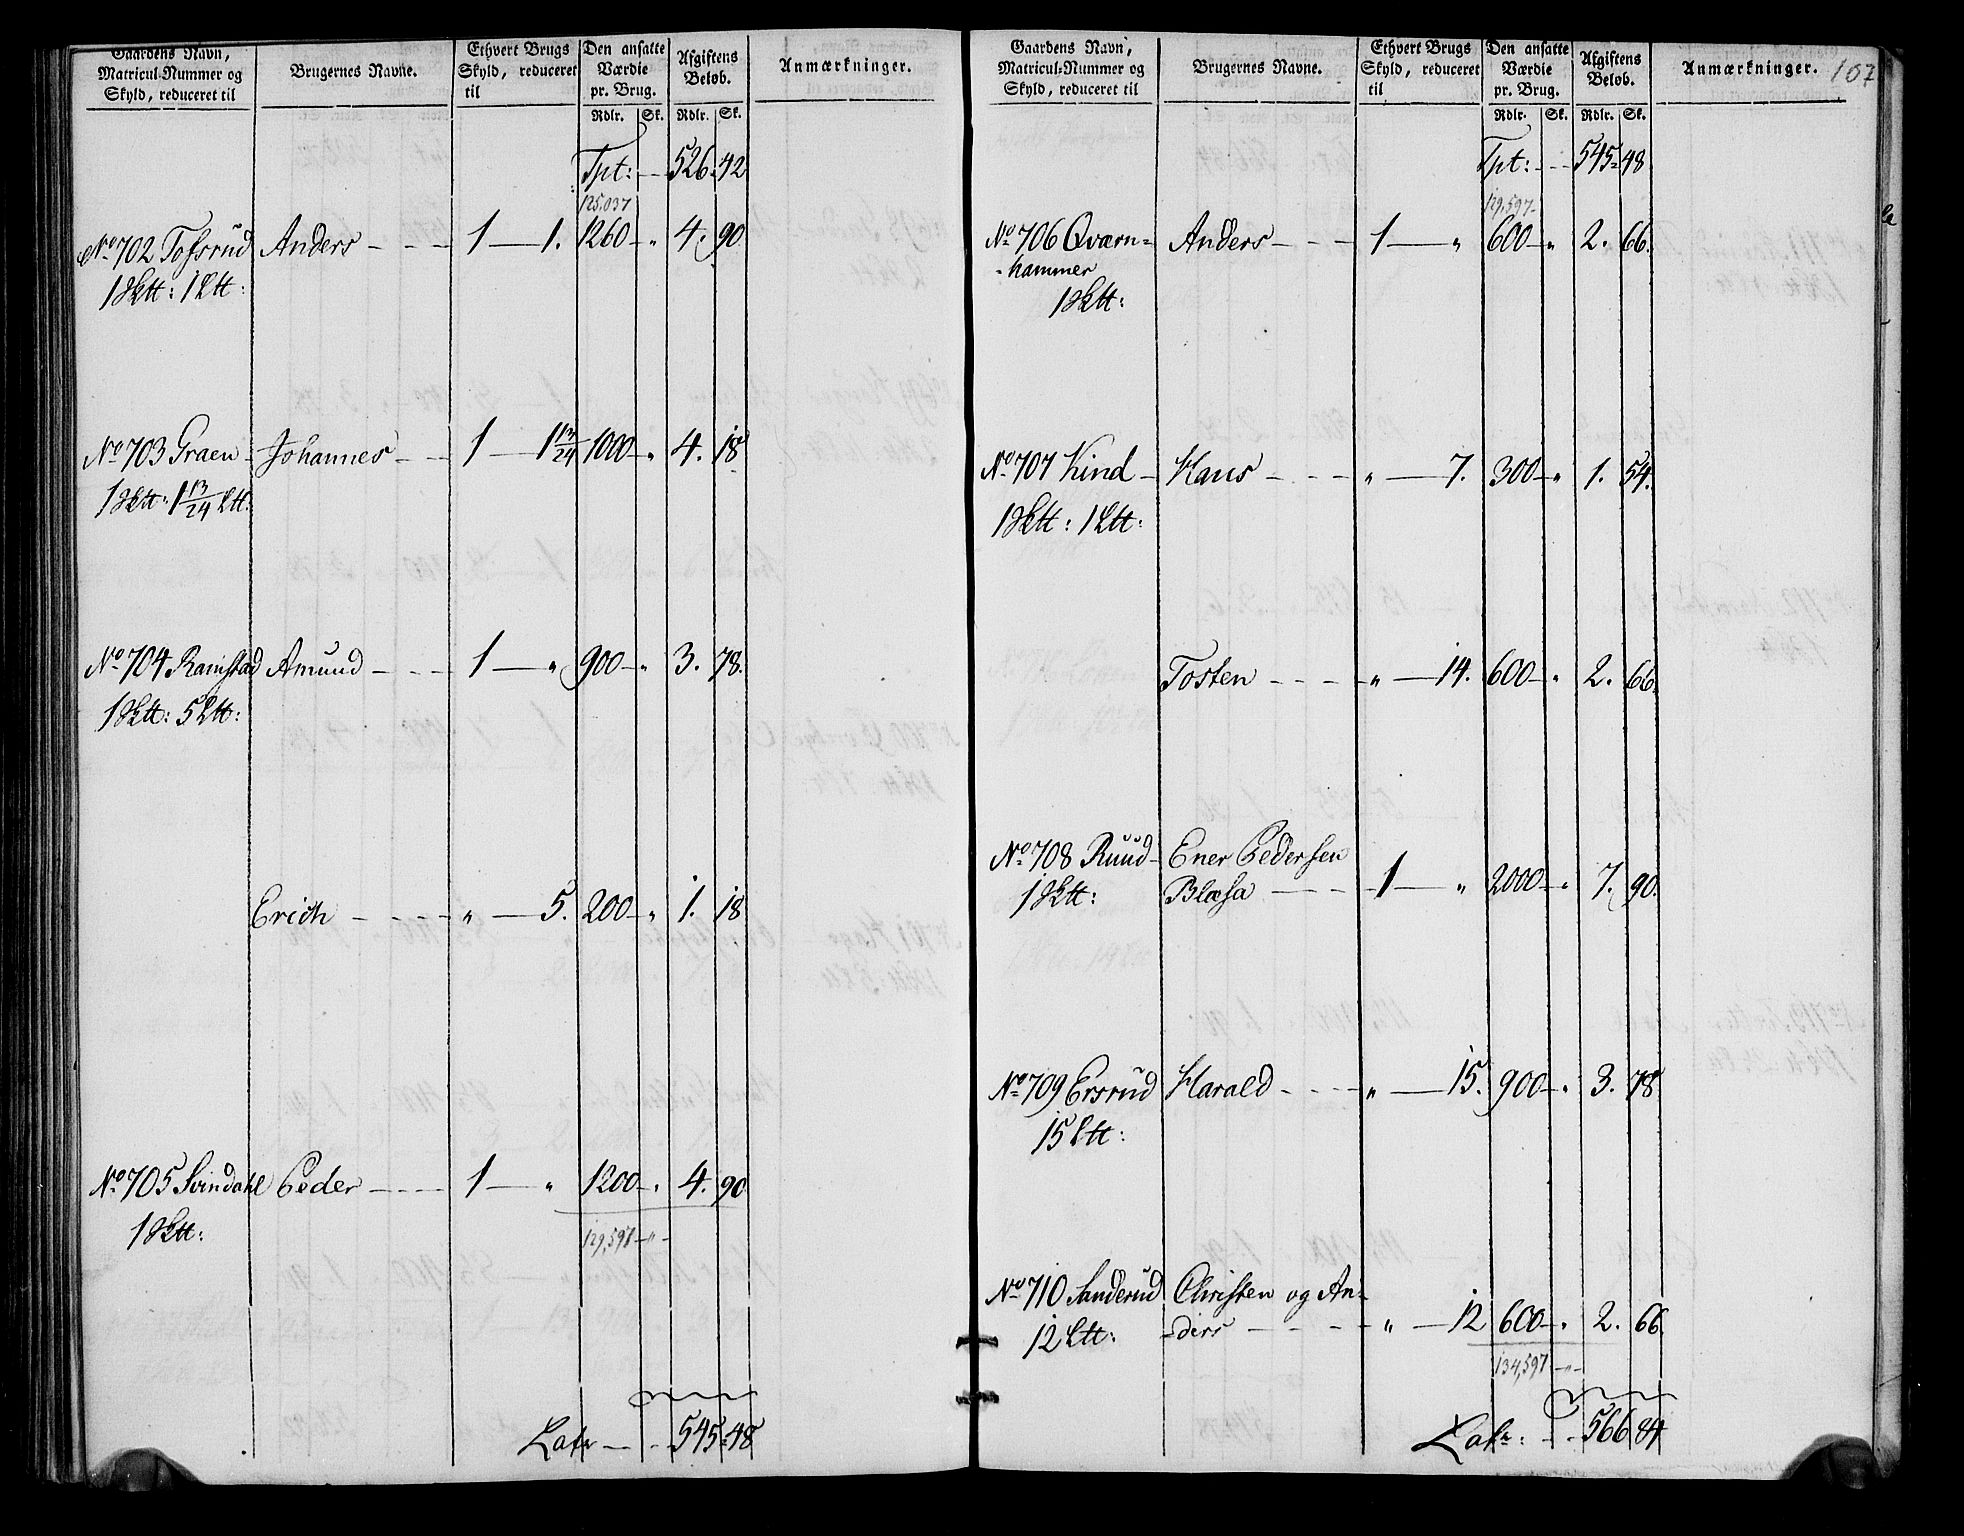 Gaardens Navn, Matricul-Nummer og Skyld, reduceret til | Brugernes Navne. | Ethvert Brugs Skyld, reduceret til | Den ansatte Værdie pr. Brug. | Afgiftens Beløb. | Anmærkninger.
Rdlr. | Sk. | Rdlr. | Sk.
Tpt: — 526. 42
125,037
No 702 Tofsrud Anders - - - 1 — 1. 1260 — „ 4. 90
1 Sktt: 1 Ltt:
No 703 Graen - Johannes - - - 1 — 1 13/24 1000 — „ 4. 18
1 Sktt: 1 13/24 Ltt:
No 704 Ramstad Amund - - - 1 — „ 900 — „ 3. 78.
1 Sktt: 5 Ltt:
Erich - - - - „ — 5. 200 — „ 1. 18
No 705 Svindahl Peder - - - 1 — „ 1200 — „ 4. 90
1 Sktt:
129,597 — „ -
Latr - - - 545 = 48
Gaardens Navn, Matricul-Nummer og Skyld, reduceret til | Brugernes Navne. | Ethvert Brugs Skyld, reduceret til | Den ansatte Værdie pr. Brug. | Afgiftens Beløb. | Anmærkninger. 107
Rdlr. | Sk. | Rdlr. | Sk.
Tpt: - - - 545 = 48
129,597-
No 706 Qværn= Anders - - - 1 — „ 600 — „ 2. 66.
-hammer
1 Sktt:
No 707 Kind - Hans - - - - „ — 7. 300 — „ 1. 54.
1 Sktt: 1 Ltt:
Tosten - - - - „ — 14. 600 — „ 2. 66.
No 708 Ruud - Ener Pedersen
1 Sktt: Blæsa - - - 1 — „ 2000 — „ 7. 90.
No 709 Ersrud Harald - - - - „ — 15. 900 — „ 3. 78
15 Ltt:
No 710 Sanderud Christen og An=
12 Ltt: -ders - - - - „ — 12 600 — „ 2. 66.
134,597 — „ -
Latr: - - - 566 84